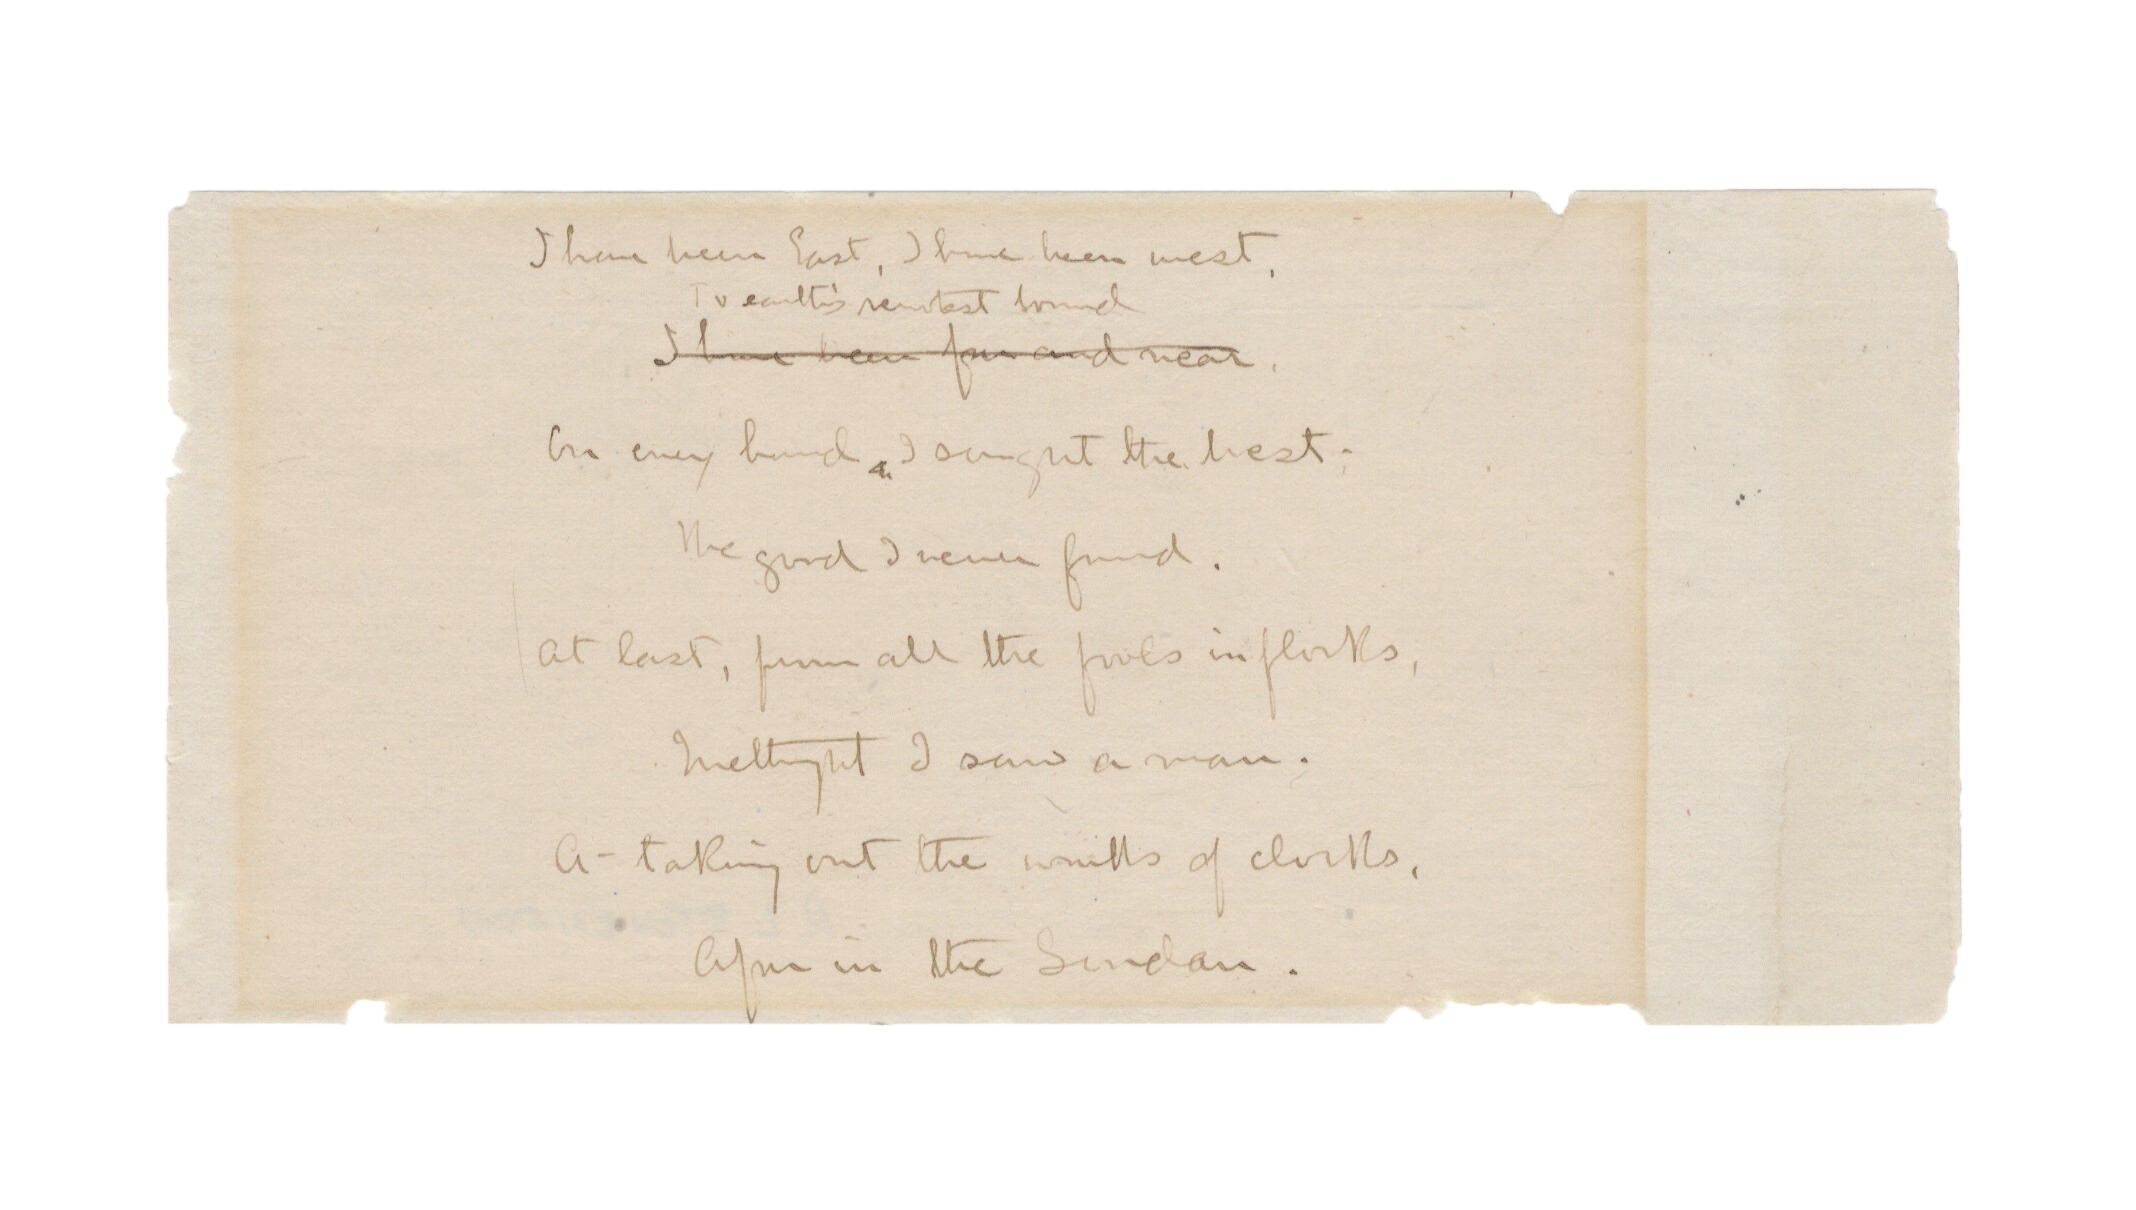 I have been East, I have been west,
To earth's remotest bound
I have been far and near.
On every hand, I sought the best;
The good I never found.
At last, from all the fools in flocks,
Methought I saw a man.
A-taking out the works of clocks,
Afar in the Soudan.